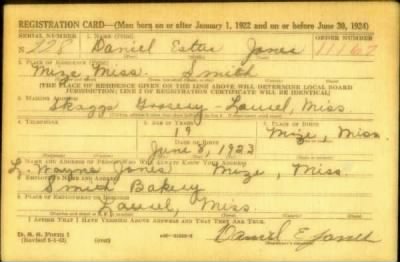 REGISTRATION CARD—(Men born on or after January 1, 1922 and on or before June 30, 1924)
SERIAL NUMBER 1. NAME (Print) ORDER NUMBER
N 228 Daniel Estus Jones 11162
2. PLACE OF RESIDENCE (Print)
Mize, Miss. Smith
[THE PLACE OF RESIDENCE GIVEN ON THE LINE ABOVE WILL DETERMINE LOCAL BOARD
JURISDICTION; LINE 2 OF REGISTRATION CERTIFICATE WILL BE IDENTICAL]
3. MAILING ADDRESS
Skaggs Grocery - Laurel, Miss
4. TELEPHONE 5. AGE IN YEARS 6. PLACE OF BIRTH
19 Mize, Miss.
DATE OF BIRTH
June 8, 1923
7. NAME AND ADDRESS OF PERSON WHO WILL ALWAYS KNOW YOUR ADDRESS
L. Wayne Jones Mize, Miss.
8. EMPLOYER'S NAME AND ADDRESS
Smith Bakery
9. PLACE OF EMPLOYMENT OR BUSINESS
Laurel, Miss.
I AFFIRM THAT I HAVE VERIFIED ABOVE ANSWERS AND THAT THEY ARE TRUE.
D. S. S. Form 1
(over) Daniel E Jones